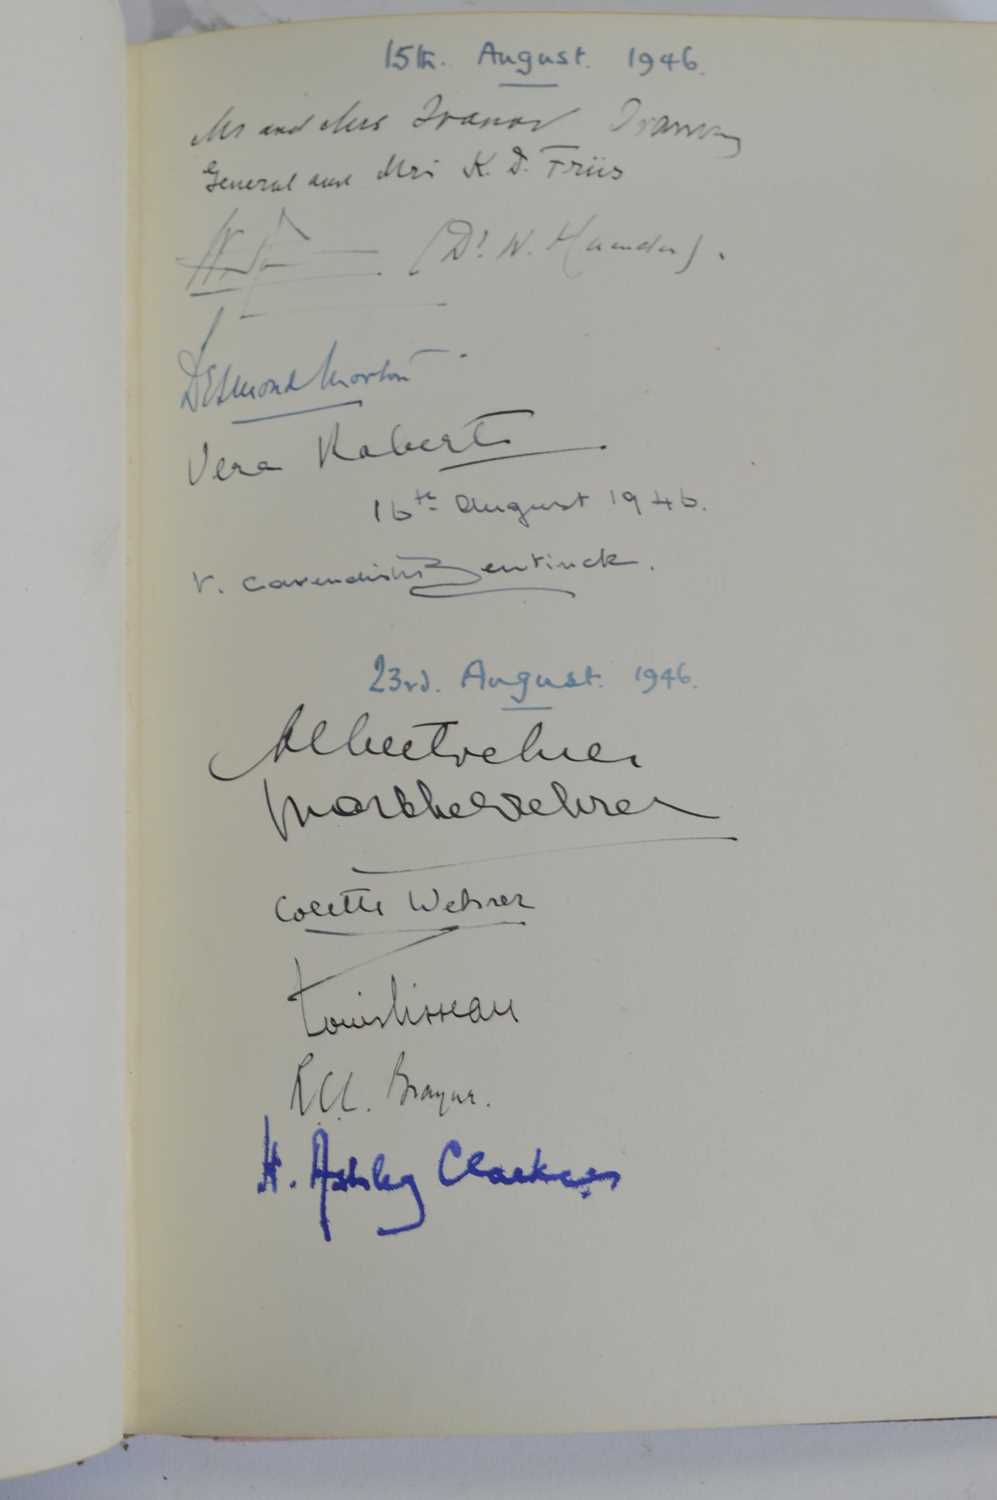 15th. August. 1946.
Mr and Mrs Ivanov
General and Mrs K. D. Friis
(Dr N.
Desmond Morton
Vera Roberts
16th August 1946.
V. Cavendish Bentinck.
23rd. August. 1946.
Albert Wehrer
Wehrer
Colette Wehrer
Louis
H. Ashley Clarke